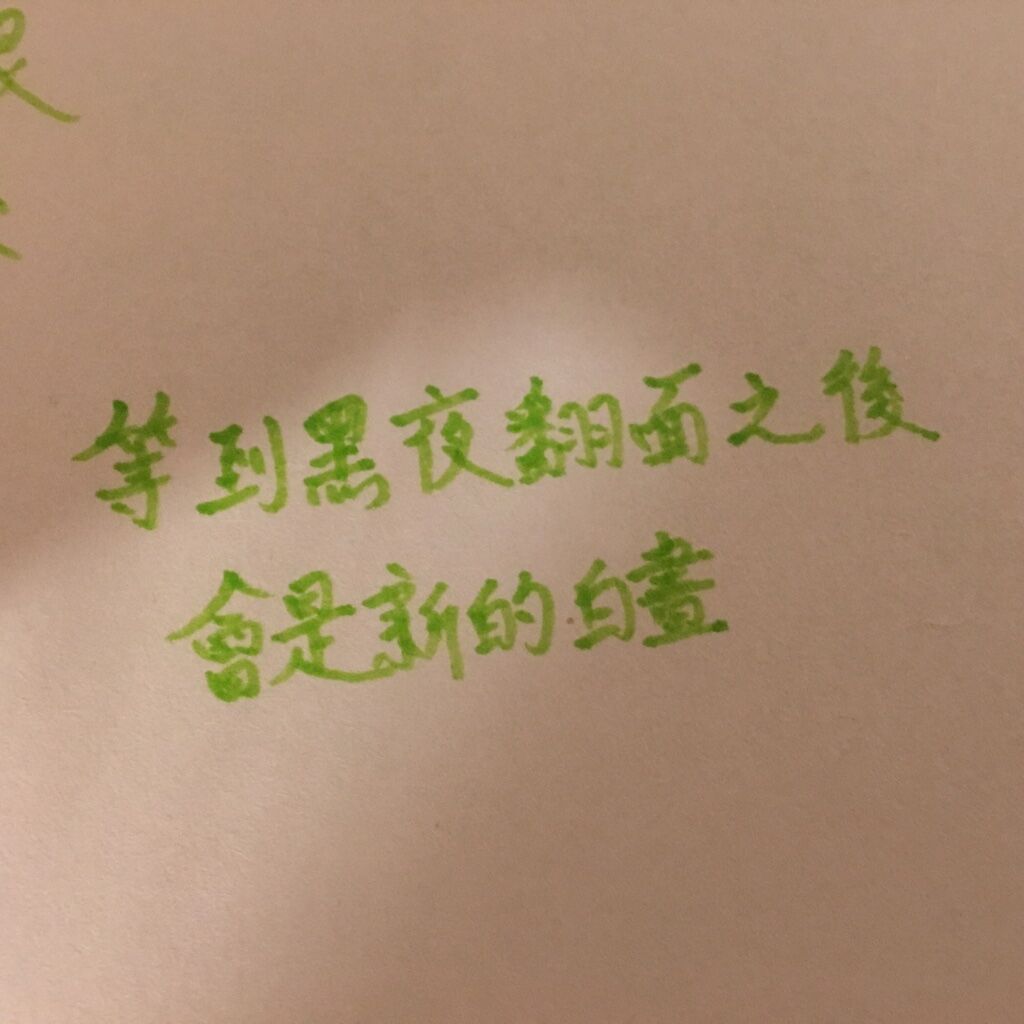 等到黑夜翻面之後
會是新的白晝